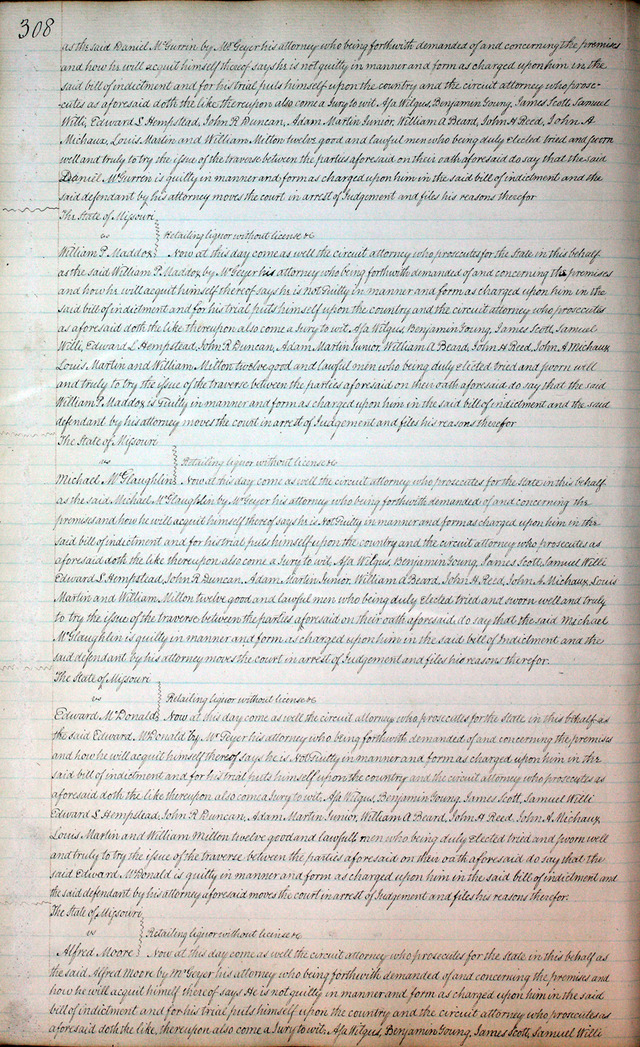 308
as the said Daniel McGurrin by Mr Geyer his attorney who being forthwith demanded of and concerning the premises
and how he will acquit himself thereof says he is not guilty in manner and form as charged upon him in the
said bill of indictment and for his trial puts himself upon the country and the circuit attorney who prose-
-cutes as aforesaid doth the like thereupon also come a Jury to wit. Asa Wilgus, Benjamin Young, James Scott, Samuel
Willi, Edward L Hempstead, John R Duncan, Adam Martin Junior, William A Beard, John H Reed, John A
Michaux, Louis Martin and William Milton twelve good and lawful men who being duly elected tried and sworn
well and truly to try the issue of the traverse between the parties aforesaid on their oath aforesaid do say that the said
Daniel McGurren is guilty in manner and form as charged upon him in the said bill of indictment and the
said defendant by his attorney moves the court in arrest of Judgement and files his reasons therefor
The State of Missouri
vs Retailing liquor without license &c
William P. Maddox Now at this day come as well the circuit attorney who prosecutes for the State in this behalf
as the said William P. Maddox by Mr Geyer his attorney who being forthwith demanded of and concerning the premises
and how he will acquit himself thereof says he is not Guilty in manner and form as charged upon him in the
said bill of indictment and for his trial puts himself upon the country and the circuit attorney who prosecutes
as aforesaid doth the like thereupon also come a Jury to wit. Asa Wilgus, Benjamin Young, James Scott, Samuel
Willi, Edward L Hempstead, John R Duncan, Adam Martin Junior, William A Beard, John H Reed, John A Michaux
Louis, Martin and William Milton twelve good and lawful men who being duly elected tried and sworn well
and truly to try the issue of the traverse between the parties aforesaid on their oath aforesaid do say that the said
William P. Maddox is Guilty in manner and form as charged upon him in the said bill of indictment and the said
defendant by his attorney moves the court in arrest of Judgement and files his reasons therefor
The State of Missouri
vs Retailing liquor without license &c
Michael McGlaughlin Now at this day come as well the circuit attorney who prosecutes for the state in this behalf
as the said Michael McGlaughlin by Mr Geyer his attorney who being forthwith demanded of and concerning the
premises and how he will acquit himself thereof says he is Not Guilty in manner and form as charged upon him in the
said bill of indictment and for his trial puts himself upon the country and the circuit attorney who prosecutes as
aforesaid doth the like thereupon also come a Jury to wit. Asa Wilgus, Benjamin Young, James Scott, Samuel Willi
Edward L Hempstead, John R Duncan, Adam Martin Junior William A Beard, John H Reed, John A Michaux, Louis
Martin and William Milton twelve good and lawful men who being duly Elected tried and sworn well and truly
to try the issue of the traverse between the parties aforesaid on their oath aforesaid do say that the said Michael
McGlaughlin is guilty in manner and form as charged upon him in the said bill of Indictment and the
said defendant by his attorney moves the court in arrest of Judgement and files his reasons therefor.
The State of Missouri
vs Retailing liquor without license &c
Edward McDonald Now at this day come as well the circuit attorney who prosecutes for the state in this behalf as
the said Edward McDonald by Mr Geyer his attorney who being forthwith demanded of and concerning the premises
and how he will acquit himself thereof says he is Not Guilty in manner and form as charged upon him in the
said bill of indictment and for his trial puts himself upon the country and the circuit attorney who prosecutes as
aforesaid doth the like thereupon also come a Jury to wit. Asa Wilgus, Benjamin Young James Scott, Samuel Willi
Edward L Hempstead, John R Duncan, Adam Martin Junior, William A Beard, John H Reed, John A Michaux,
Louis Martin and William Milton twelve good and lawfull men who being duly elected tried and sworn well
and truly to try the issue of the traverse between the parties aforesaid on their oath aforesaid do say that the
said Edward McDonald is guilty in manner and form as charged upon him in the said bill of indictment and
the said defendant by his attorney aforesaid moves the court in arrest of Judgement and files his reasons therefor.
The State of Missouri
vs Retailing liquor without license &c
Alfred Moore Now at this day come as well the circuit attorney who prosecutes for the state in this behalf as
the said Alfred Moore by Mr Geyer his attorney who being forthwith demanded of and concerning the premises and
how he will acquit himself thereof says He is not guilty in manner and form as charged upon him in the said
bill of indictment and for his trial puts himself upon the country and the circuit attorney who prosecutes as
aforesaid doth the like, thereupon also come a Jury to wit. Asa Wilgus, Benjamin Young, James Scott, Samuel Willi